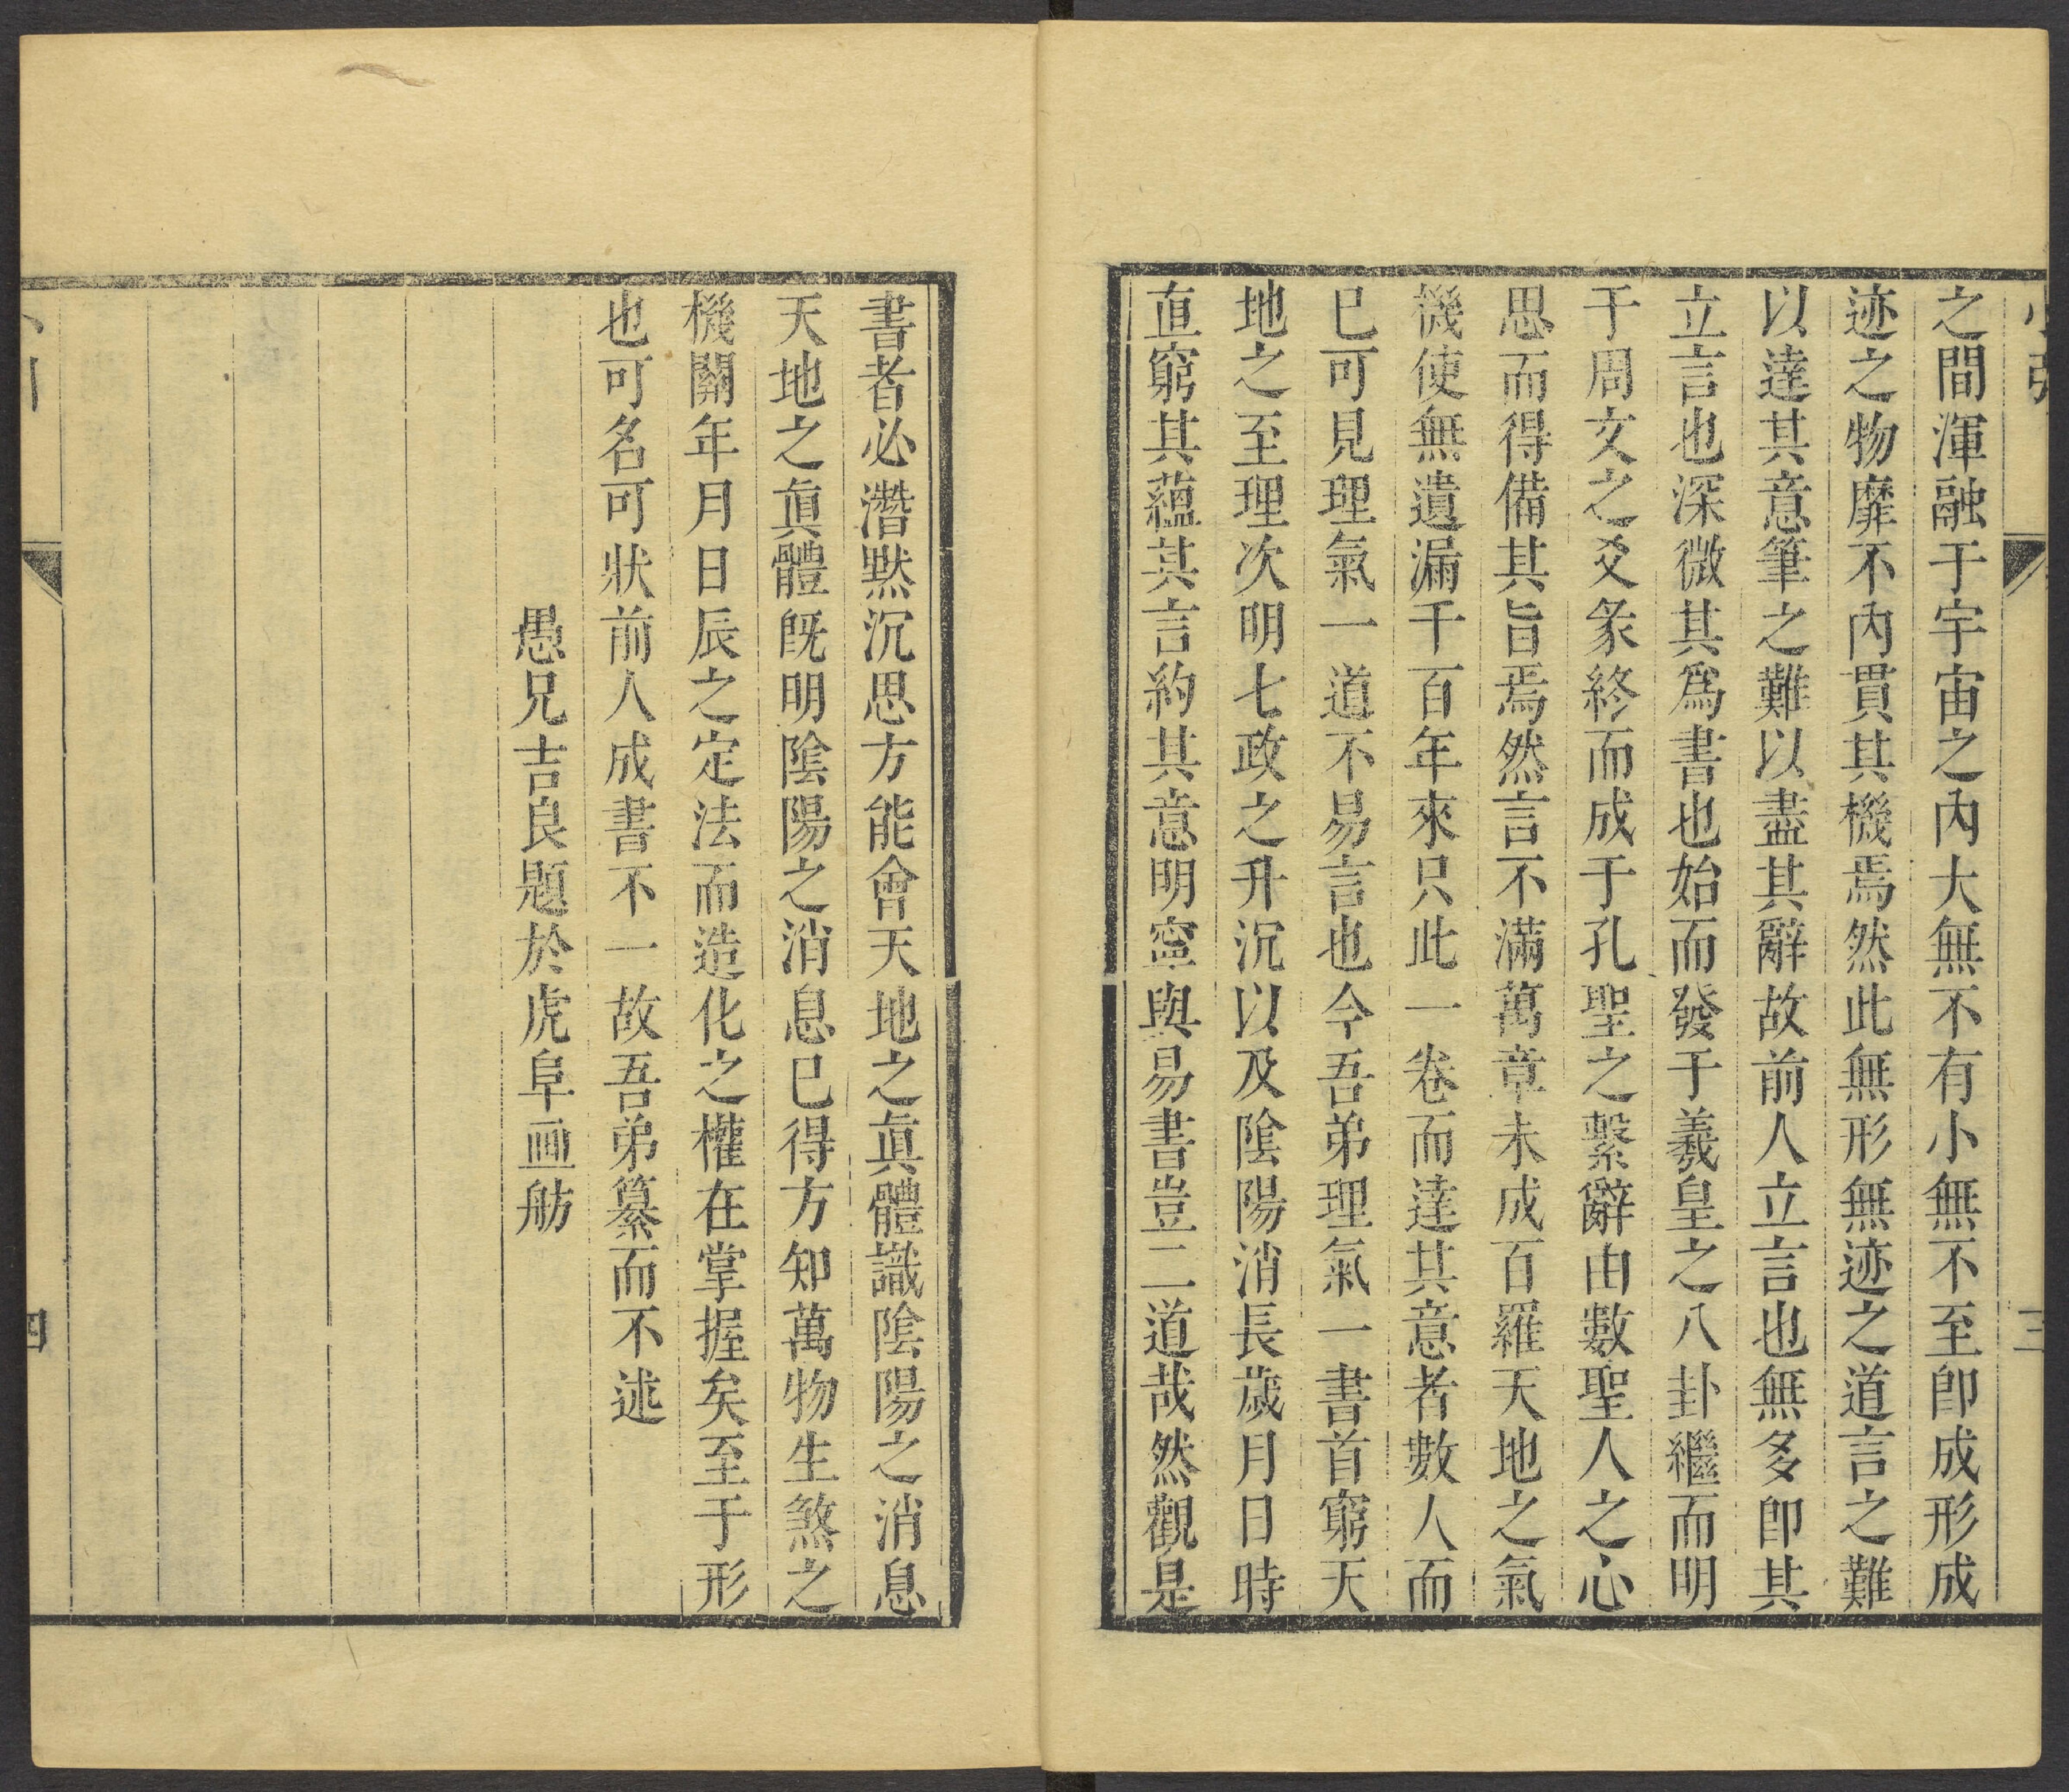 之間渾融于宇宙之內大無不有小無不至卽成形成
迹之物靡不內貫其機焉然此無形無迹之道言之難
以達其意筆之難以盡其辭故前人立言也無多卽其
立言也深微其爲書也始而發于羲皇之八卦繼而明
于周文之爻彖終而成于孔聖之繫辭由數聖人之心
思而得備其旨焉然言不滿萬章未成百羅天地之氣
機使無遺漏千百年來只此一卷而達其意者數人而
已可見理氣一道不易言也今吾弟理氣一書首窮天
地之至理次明七政之升沉以及陰陽消長歲月日時
直窮其蘊其言約其意明寧與易書豈二道哉然觀是
書者必潛默沉思方能會天地之眞體識陰陽之消息
天地之眞體旣明陰陽之消息已得方知萬物生煞之
機關年月日辰之定法而造化之權在掌握矣至于形
也可名可狀前人成書不一故吾弟纂而不述
愚兄吉良題於虎阜画舫
三
四